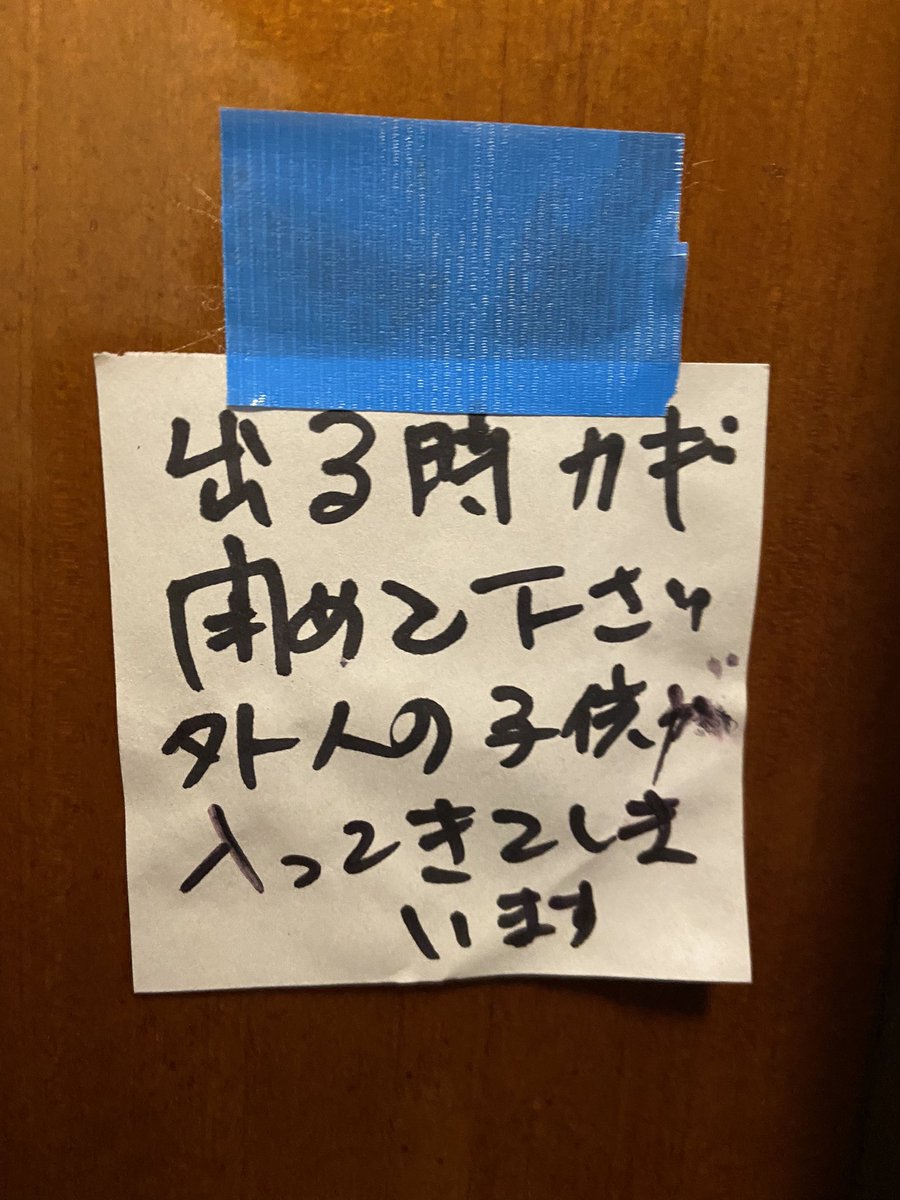 出る時カギ
閉めて下さい
外人の子供が
入ってきてしま
います